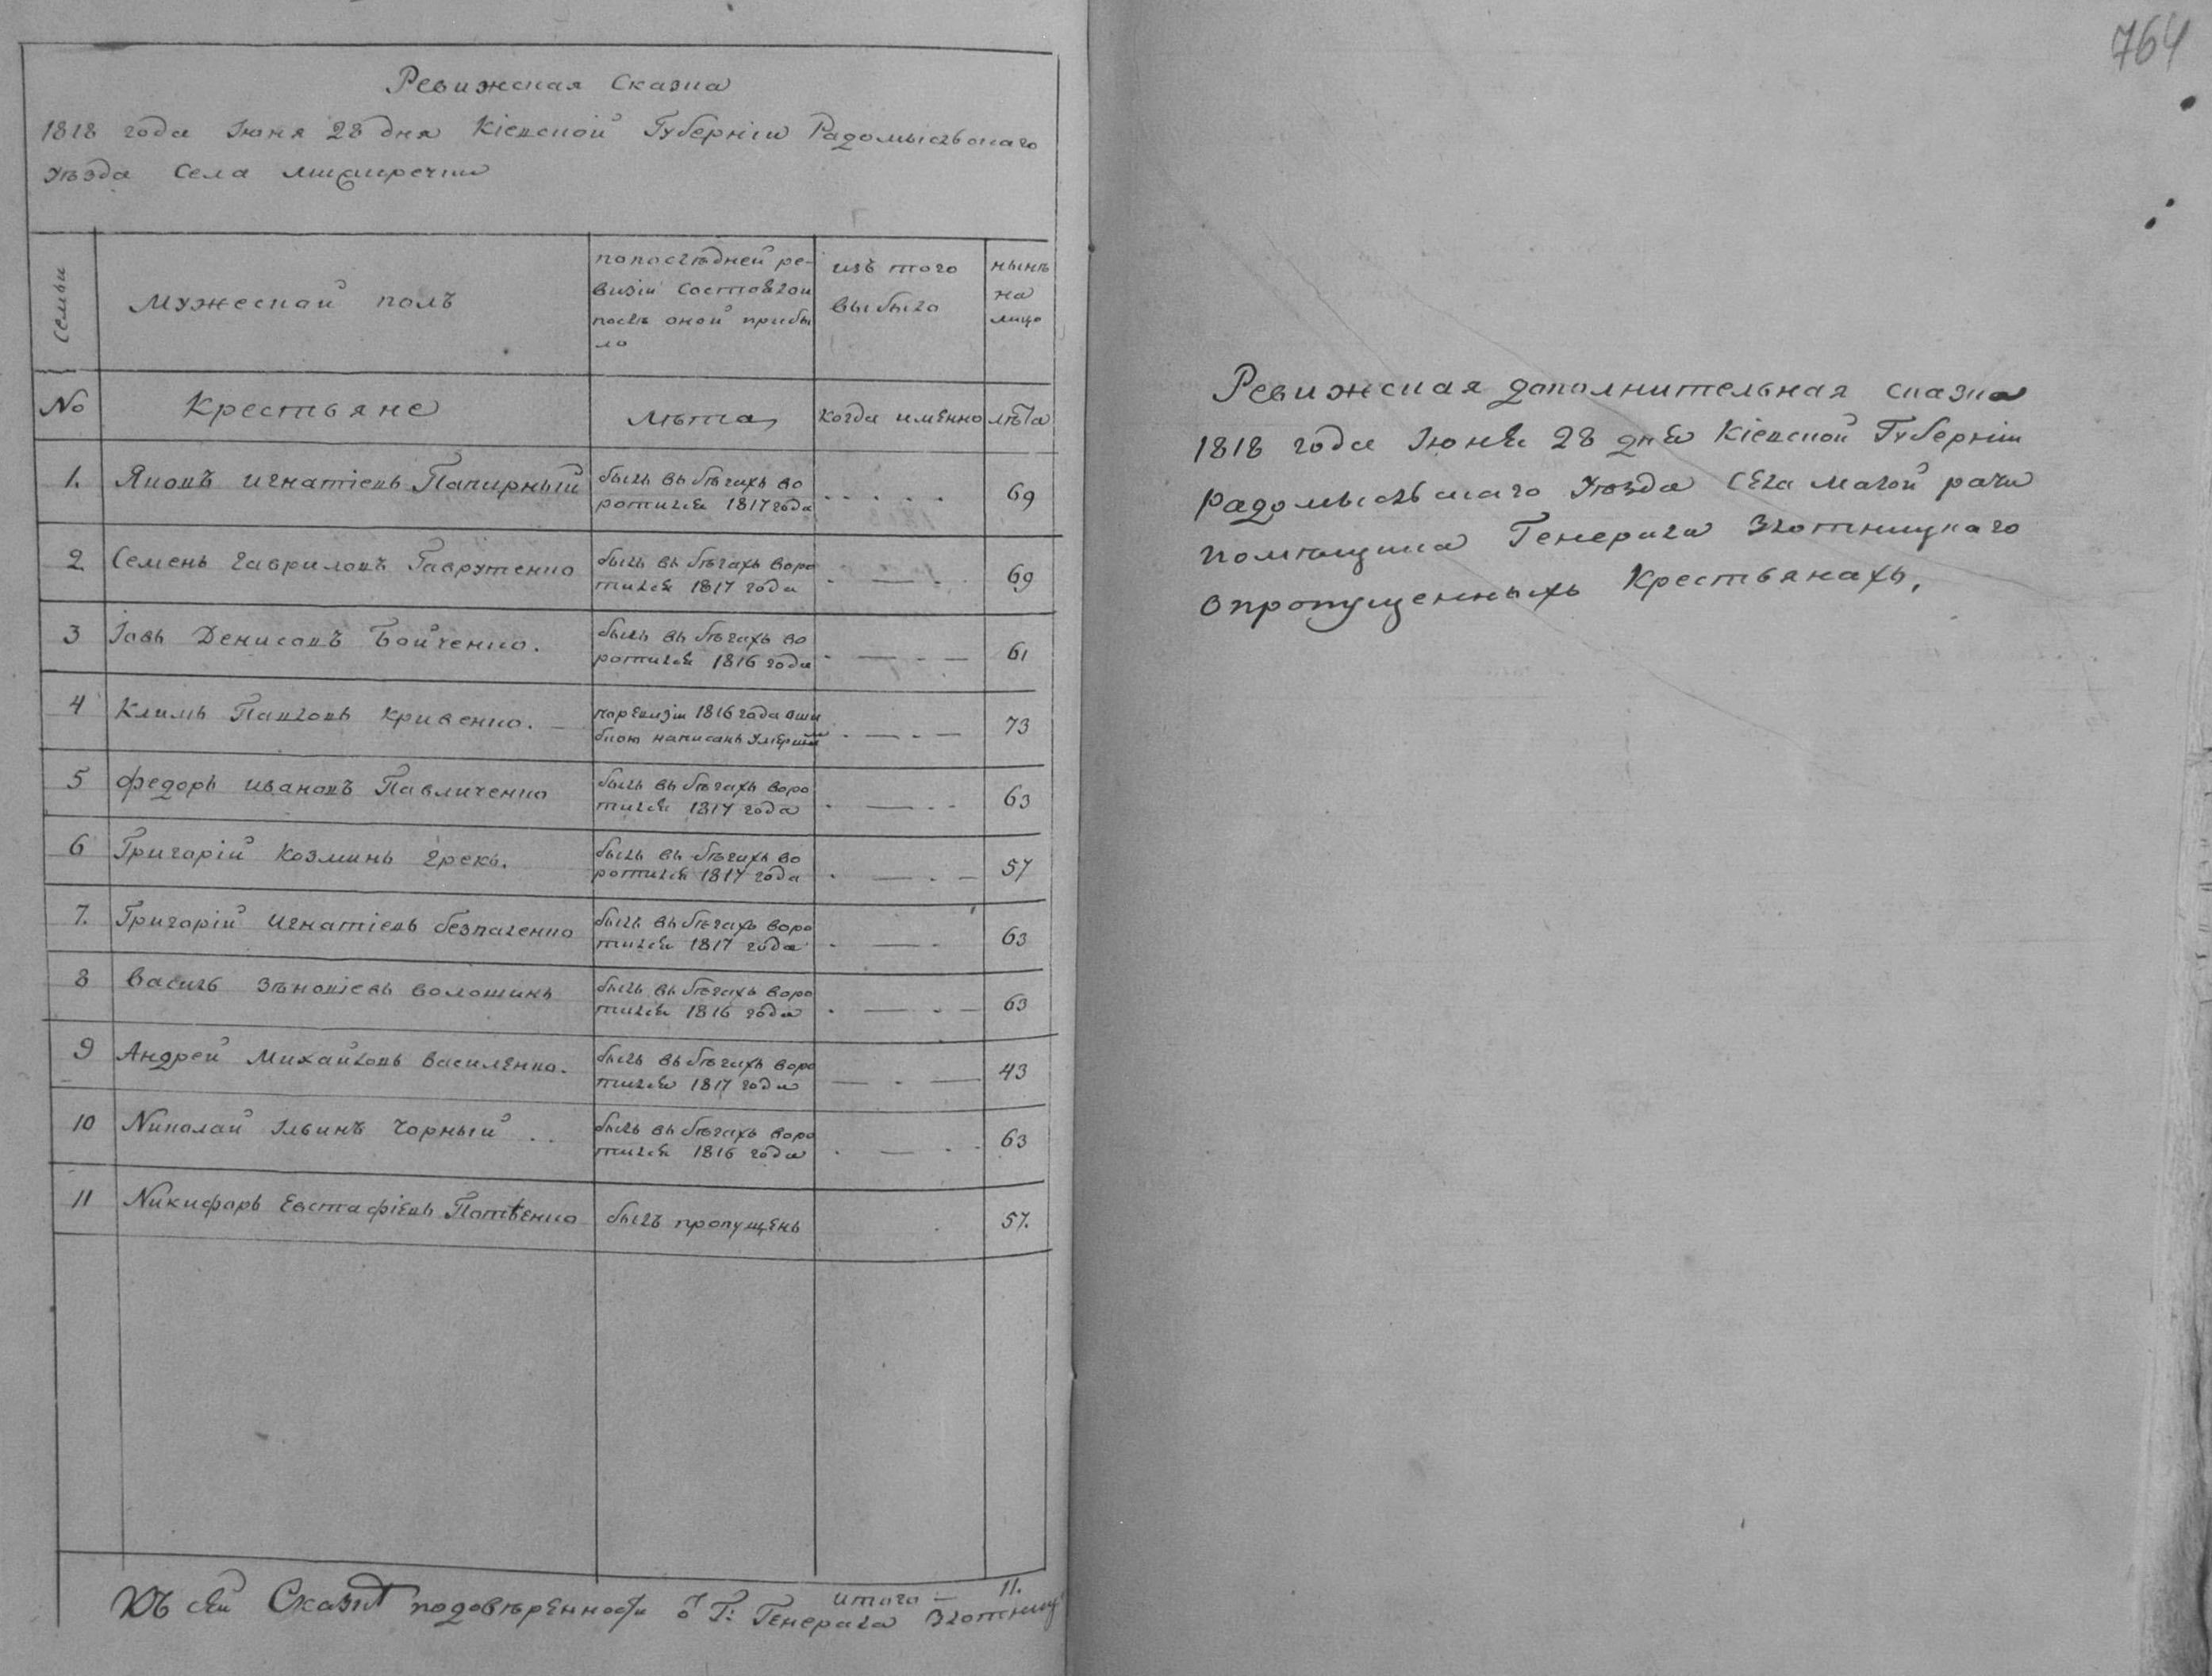 Ревижская Сказка
1818 года Іюня 28 дня Кіевской Губерніи Радомысльскаго
уѣзда Села
Семьи
Мужеской полъ
попослѣдней ре-
визіи состояло и
послѣ оной прибы
ло
изъ того
выбыло
нынѣ
на
лицо
No Крестьяне лѣта когда имянно лѣта
1. Яковъ Игнатіевъ Папирный былъ въ бѣгахъ во
ротился 1817 года 69
2 Семенъ Гавриловъ Гаврутенко былъ въ бѣгахъ воро
тился 1817 года 69
3 Іовъ Денисовъ Бойченко. былъ въ бѣгахъ во
ротился 1816 года 61
4 Климъ Павловъ Кривенко. поревизіи 1816 года оши
бкою написанъ умершим 73
5 Федоръ Ивановъ Павличенко былъ въ бѣгахъ воро
тился 1817 года 63
6 Григорій Козминъ Грекъ. былъ въ бѣгахъ во
ротился 1817 года 57
7. Григорій Игнатіевъ Безпаленко былъ въ бѣгахъ воро
тился 1817 года 63
8 Василь Зѣновіевъ Волошинъ былъ въ бѣгахъ воро
тился 1816 года 63
9 Андрей Михайловъ Василенко. былъ въ бѣгахъ воро
тился 1817 года 43
10 Николай Ильинъ Чорный былъ въ бѣгахъ воро
тился 1816 года 63
11 Никифоръ Евстафіевъ былъ пропущенъ 57.
итого — 11.
Къ сей Сказкѣ подовѣренности о Г: Генерала Злотниц
764
Ревижская дополнительная сказка
1818 года Іюня 28 дня Кіевской Губерніи
Радомысльскаго уѣзда Села Малой рачи
помѣщика Генерала Злотницкаго
опропущенныхъ Крестьянахъ.